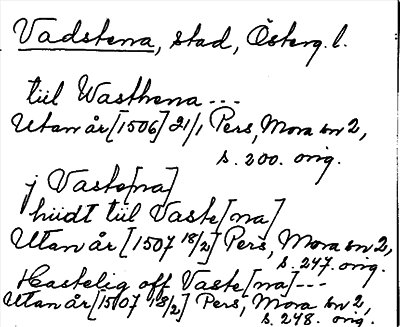 Vadstena, stad, Österg. l.
till Wasthena ---
Utan år [1506] 21/1 Pers, Mora sn 2,
s. 200. orig.
j Vaste[na]
hüdt till Vaste[na]
Utan år [1507 18/2] Pers, Mora sn 2,
s. 247. orig.
Hastelig off Vaste[na] ---
Utan år [1507 18/2] Pers, Mora sn 2,
s. 248. orig.